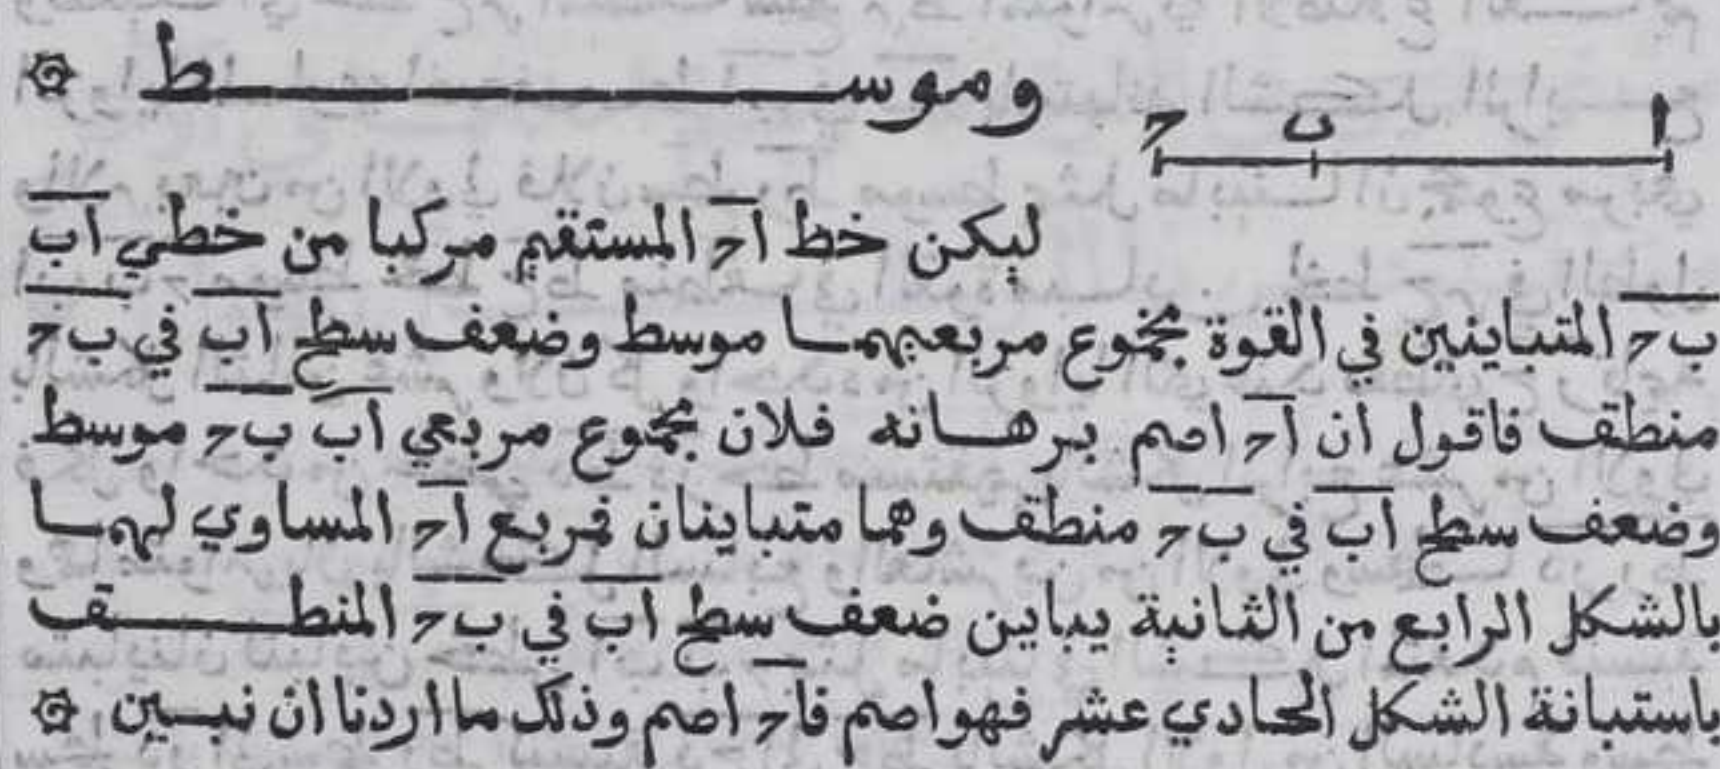 وموسط ۞
ا ب ح
ليكن خط اح المستقيم مركبا من خطي اب
ب ح المتباينين في القوة مجموع مربعيهما موسط وضعف سطح اب في ب ح
منطقف فاقول ان اح اصم برهانه فلان مجموع مربعي اب ب ح موسط
وضعف سطح اب في ب ح منطق وهما متباينان فمربع اح المساوي لهما
بالشكل الرابع من الثانية يباين ضعف سطح اب في ب ح المنطق
باستبانة الشكل الحادي عشر فهو اصم فاح اصم وذلك ما اردنا ان نبين ۞